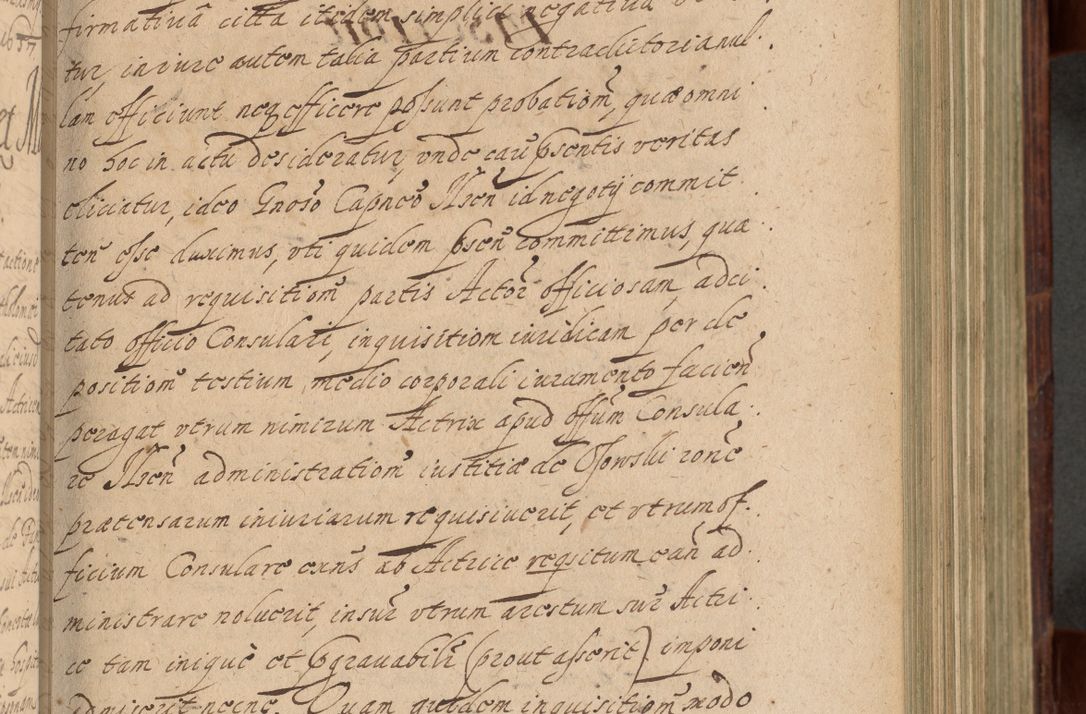 firmativâ citta itidem simplici negativa
tur, in iure autem talia partium contradictoria nul
lam efficiunt neq efficere possunt probatiom̃, quæ omni
no hoc in actu desideratur, vnde cau p̃sentis veritas
eliciatur, ideo Gnoso Capneo Nsen̄ id negotij commit
ten̄ esse duximus, vti quidem p̃sen̄ committimus, qua
tenus ad requisitiom̃ partis Actor̃ officiosam, adci
tato officio Consulari, inquisitiom iuridicam per de
positiom̃ testium medio corporali iuramento facien̄
peragat vtrum nimirum Actrix apud offũm Consula
re Nsen̄ administratiom̃ iustitiæ de Osowski ron̄e
prætensarum iniuriarum requisiuerit, et vtrum of
ficium Consulare eun̄s ab Actrice reqsitum ean̄ ad
ministrare noluerit, insuꝑ vtrum arestum suꝑ Actri
ce tam iniquè et p̱grauabilr̃ (prout asserit) imponi
admiserit necne. Quam quidem inquisitiom̃ modo